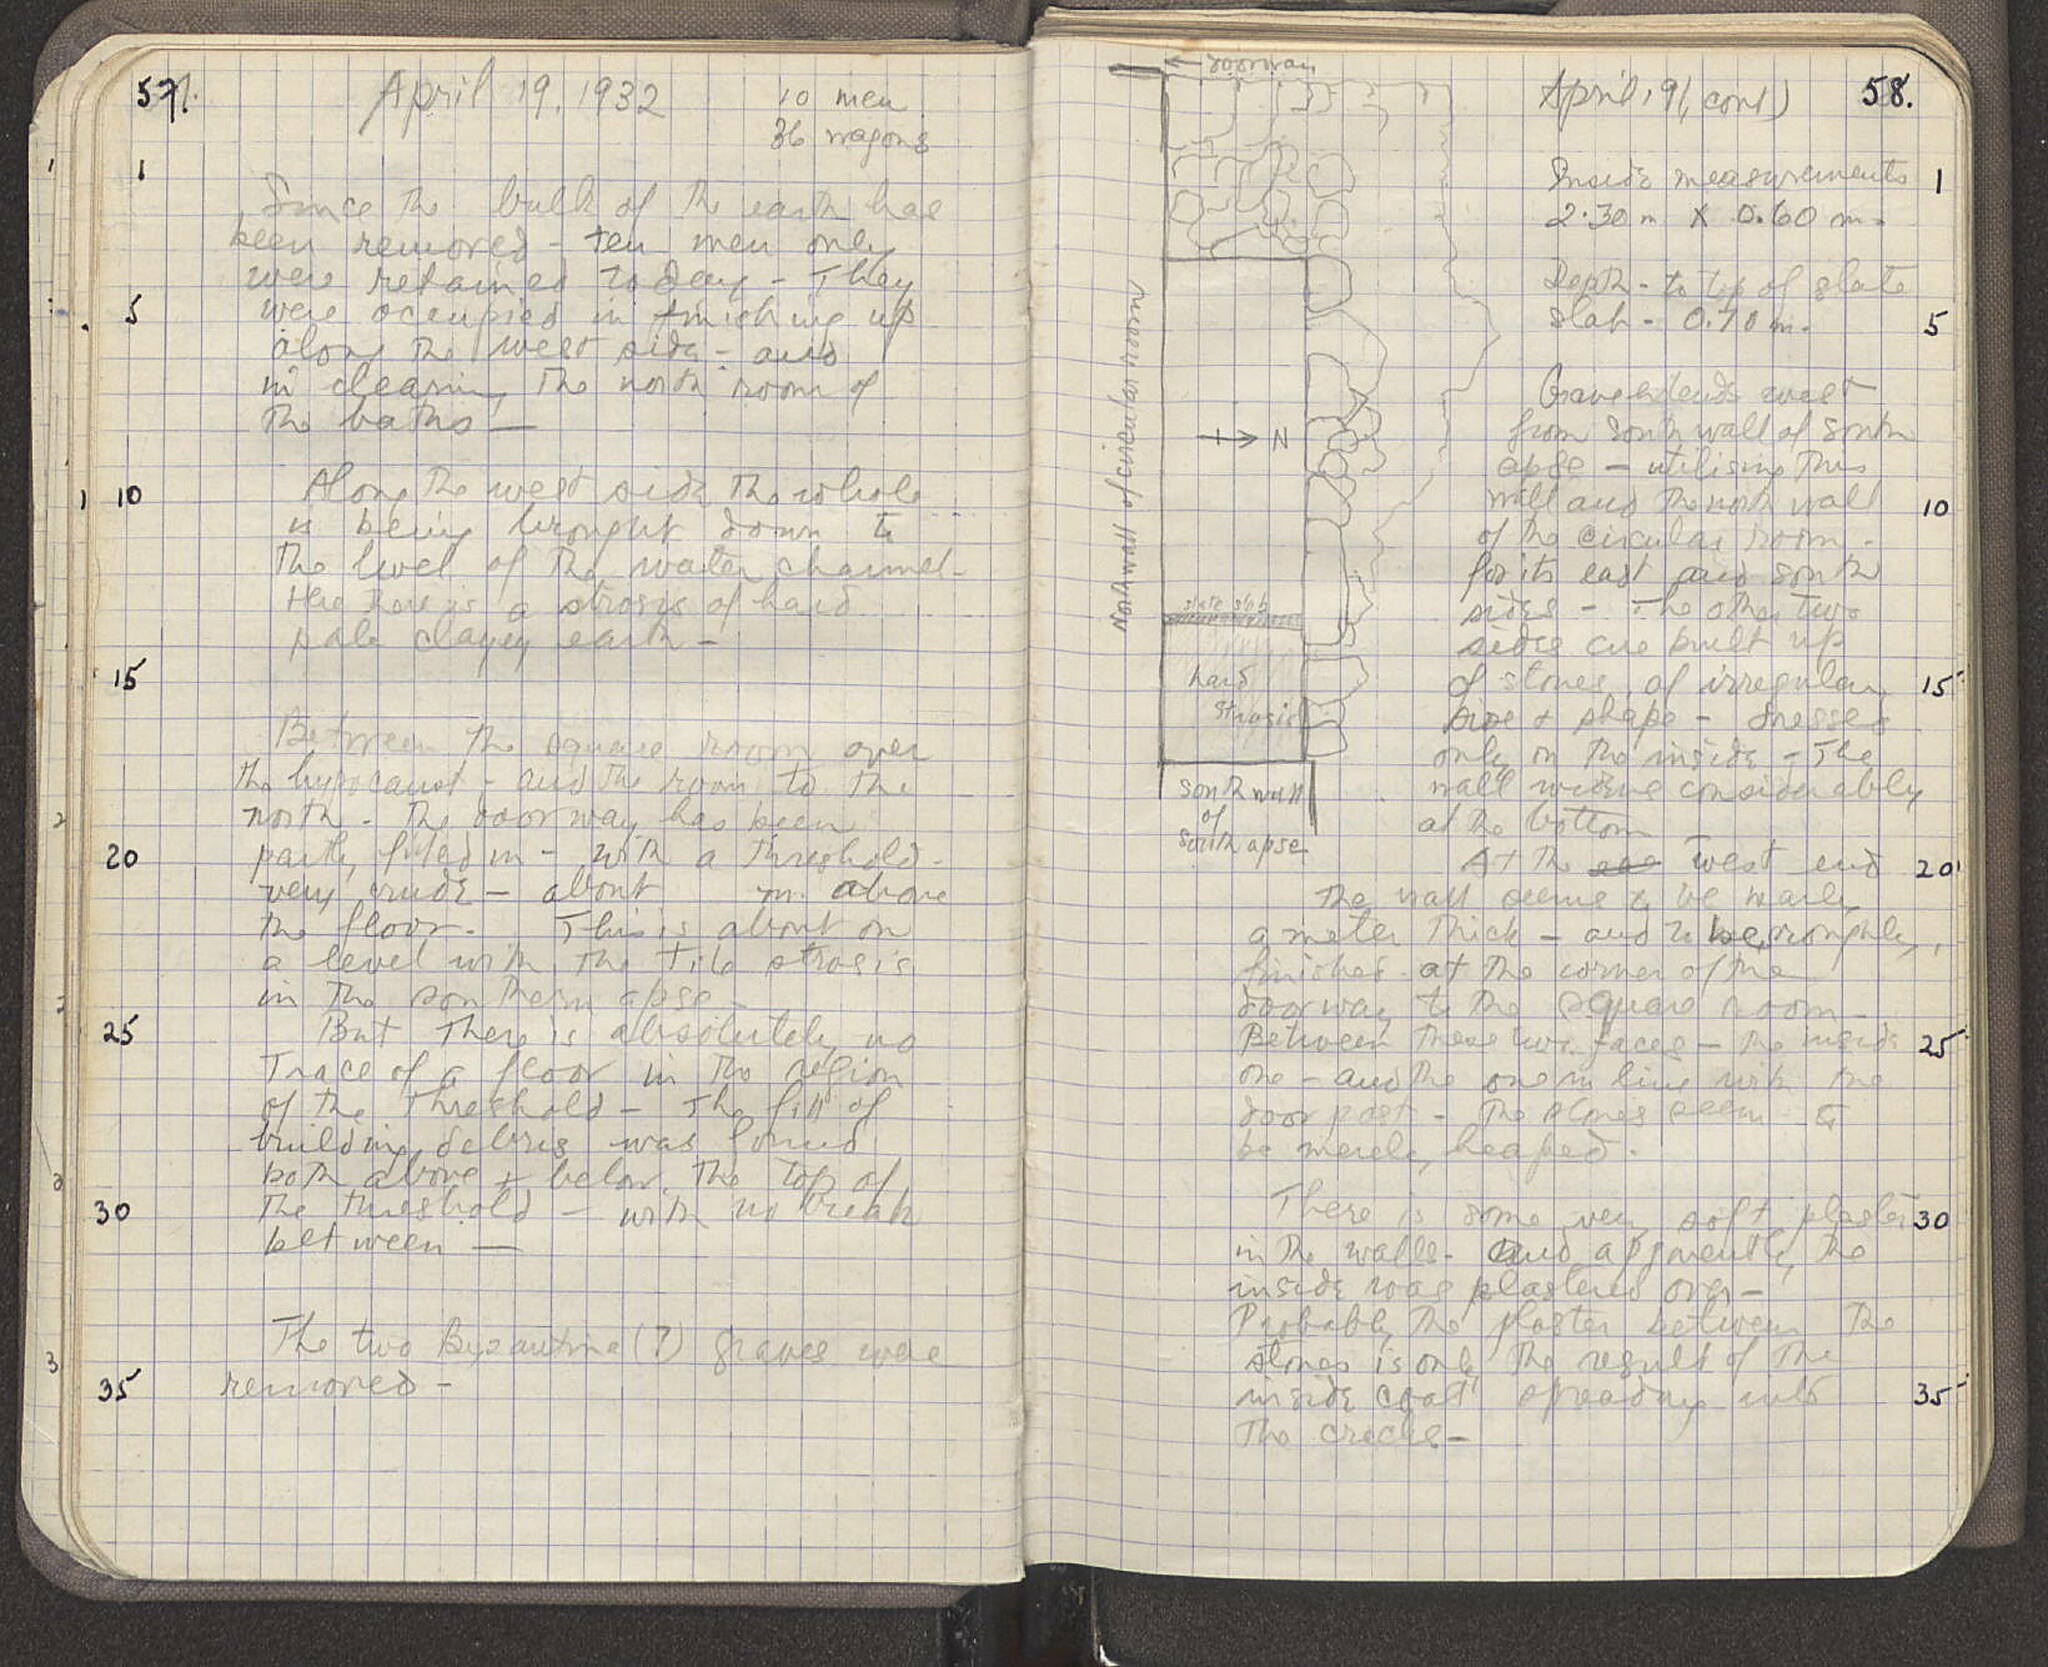 57.
April 19, 1932
10 men
36 wagons
1
Since the bulk of the earth has
been removed - ten men only
were retained today - They
were occupied in finishing up
5
along the west side - and
in clearing the north room of
the baths —
Along the west side the whole
10
is being brought down to
the level of the water channel -
Here there is a strosis of hard
pale clayey earth -
15
Between the square room over
the hypocaust - and the room to the
north - the doorway has been
partly filled in - with a threshold -
20
very crude - about m. above
the floor. This is about on
a level with the tile strosis
in the southern apse -
But there is absolutely no
25
trace of a floor in the region
of the threshold - The fill of
building debris was found
both above + below the top of
the threshold - with no break
30
between —
The two Byzantine (?) graves were
removed -
35
58.
April 19 (cont)
← doorway
Inside measurements
1
2.30 m X 0.60 m.
Depth - to top of slate
slab - 0.70 m.
5
Grave extends west
from south wall of south
apse - utilising this
wall and the north wall
10
of the circular room -
for its east and south
sides - The other two
sides are built up
of stones of irregular
15
size + shape - dressed
only on the inside - The
wall widens considerably
at the bottom
At the west end
20
the wall seems to be nearly
a meter thick - and to be roughly
finished at the corner of the
doorway to the square room -
Between these two faces - the inside
25
one - and the one in line with the
door post - the stones seem to
be merely heaped.
There is some very soft plaster
30
in the walls - and apparently the
inside was plastered over -
Probably the plaster between the
stones is only the result of the
inside coat spreading into
35
the cracks -
North wall of circular room
→ N
slate slab
hard
strosis
south wall
of
south apse